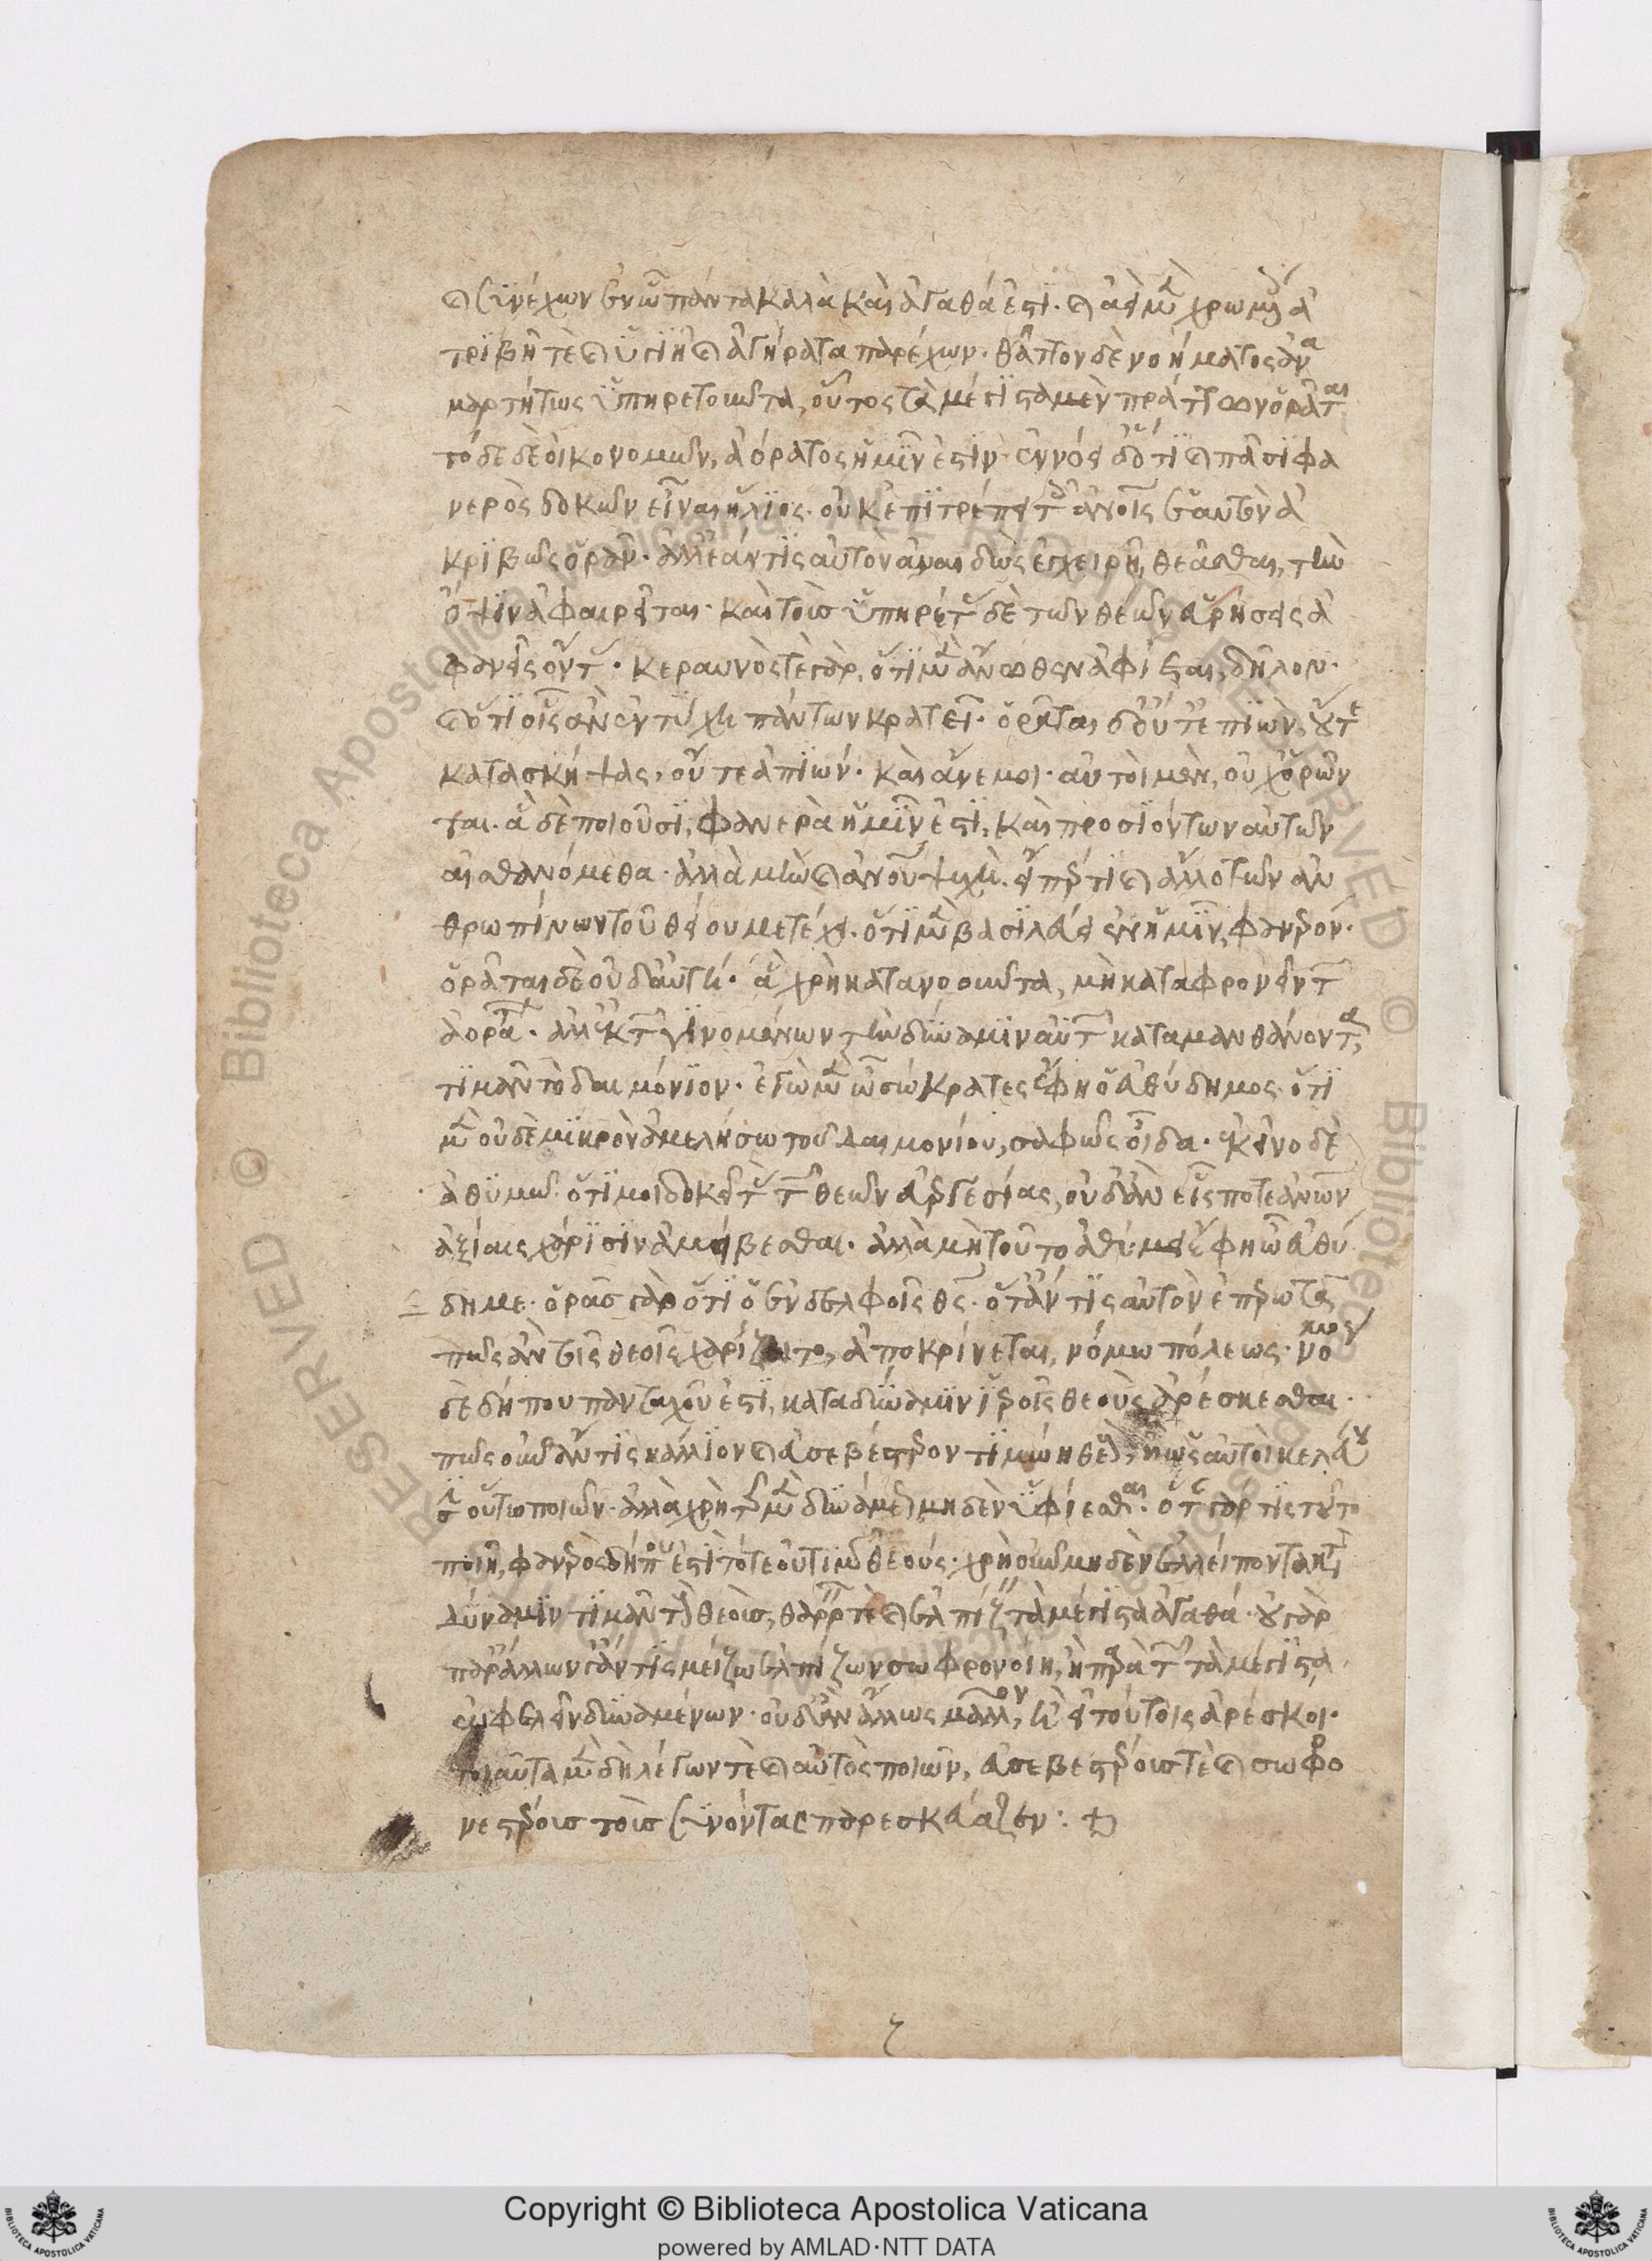 καὶ συνέχων ἐν ᾧ πάντα καλὰ καὶ ἀγαθά ἐστι. καὶ ἀεὶ μὲν χρωμένοις ἀ
τριβῆ τὲ καὶ ὑγιῆ καὶ ἀγήρατα παρέχων. θᾶττον δὲ νοήματος ἀνα
μαρτήτως ὑπηρετοῦντα, οὗτος τὰ μέγιστα μὲν πράττων ὁρᾶται
τόδε δὲ οἰκονομῶν, ἀόρατος ἡμῖν ἐστιν. ἐννόει δὲ ὅτι καὶ ὁ πᾶσι φα
νερὸς δοκῶν εἶναι ἥλιος. οὐκ ἐπιτρέπει τοῖς ἀνοις ἑαυτὸν ἀ
κριβῶς ὁρᾶν. ἀλλ' ἐάν τις αὐτὸν ἀναιδῶς ἐγχειρῆ θεᾶσθαι, τὴν
ὄψιν ἀφαιρεῖται. καὶ τοὺς ὑπηρέτας δὲ τῶν θεῶν εὑρήσεις ἀ
φανεῖς ὄντας. κεραυνός τε γὰρ, ὅτι μὲν ἄνωθεν ἀφίεται, δῆλον.
καὶ ὅτι οἷς ἂν ἐντύχῃ πάντων κρατεῖ. ὁρᾶται δ' οὔτ' ἐπιὼν, οὔτε
κατασκήψας, οὔτε ἀπιών. καὶ ἄνεμοι. αὐτοὶ μὲν, οὐχ ὁρῶν
ται. ἃ δὲ ποιοῦσι, φανερὰ ἡμῖν ἐστι, καὶ προσιόντων αὐτῶν
αἰσθανόμεθα. ἀλλὰ μὴν καὶ ἀνου ψυχὴ. εἴπερ τι καὶ ἄλλο τῶν ἀν
θρωπίνων τοῦ θείου μετέχει. ὅτι μὲν βασιλεύει ἐν ἡμῖν, φανερόν.
ὁρᾶται δὲ οὐδ' αὐτή. ἃ χρὴ κατανοοῦντα, μὴ καταφρονεῖν τῶν
ἀοράτων. ἀλλ' ἐκ τῶν γινομένων τὴν δύναμιν αὐτῶν καταμανθάνοντα,
τιμᾶν τὸ δαιμόνιον. ἐγὼ μὲν ὦ σώκρατες ἔφη ὁ εὐθύδημος. ὅτι
μὲν οὐδὲ μικρὸν ἀμελήσω τοῦ δαιμονίου, σαφῶς οἶδα. ἐκεῖνο δὲ
ἀθυμῶ. ὅτι μοι δοκεῖ τὰς τῶν θεῶν εὐεργεσίας, οὐδ' ἂν εἷς ποτε ἀνων
ἀξίαις χάρισιν ἀμείβεσθαι. ἀλλὰ μὴ τοῦτο ἀθύμει ἔφη ὦ εὐθύ
δημε. ὁρᾶς γὰρ ὅτι ὁ ἐν δελφοῖς θς. ὅταν τις αὐτὸν ἐπερωτᾶ
πῶς ἂν τοῖς θεοῖς χαρίζοιτο, ἀποκρίνεται, νόμω πόλεως. νόμος
δὲ δήπου πανταχοῦ ἐστι, κατὰ δύναμιν ἱεροῖς θεοὺς ἀρέσκεσθαι.
πῶς οὖν ἄν τις κάλλιον καὶ εὐσεβέστερον τιμώη θεοὺς, ἢ ὡς αὐτοὶ κελεύου
σιν οὕτω ποιῶν. ἀλλὰ χρὴ τῆς μὲν δυνάμεως μηδὲν ὑφίεσθαι. ὅταν γάρ τις τοῦτο
ποιῆ, φανερὸς δήπου ἐστὶ τότε οὐ τιμῶν θεούς. χρὴ οὖν μηδὲν ἐλλείποντα κατὰ
δύναμιν τιμᾶν τοὺς θεοὺς, θαρρεῖν τὲ καὶ ἐλπίζειν τὰ μέγιστα ἀγαθά. οὐ γὰρ
παρ' ἄλλων γ' ἄν τις μείζω ἐλπίζων σωφρονοίη, ἢ παρὰ τῶν τὰ μέγιστα
ὠφελεῖν δυναμένων. οὐδ' ἂν ἄλλως μᾶλλον, ἢ εἰ τούτοις ἀρέσκοι.
τοιαῦτα μὲν δὴ λέγων τὲ καὶ αὐτὸς ποιῶν, εὐσεβεστέρους τὲ καὶ σωφρο
νεστέρους τοὺς συνόντας παρεσκεύαζεν: